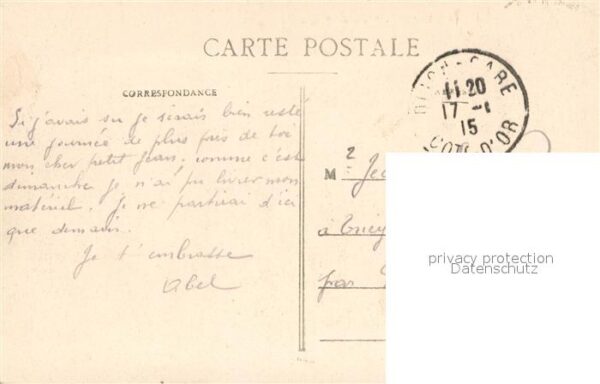 CARTE POSTALE
CORRESPONDANCE
Si j'avais su je serais bien resté
une journée de plus près de toi
mon cher petit Jean, comme c'est
dimanche je n'ai pu livrer mon
matériel. Je ne partirai d'ici
que demain.
Je t'embrasse
Abel
DIJON-GARE
11.20
17 -1
15
COTE D'OR
M
à
par
privacy protection
Datenschutz